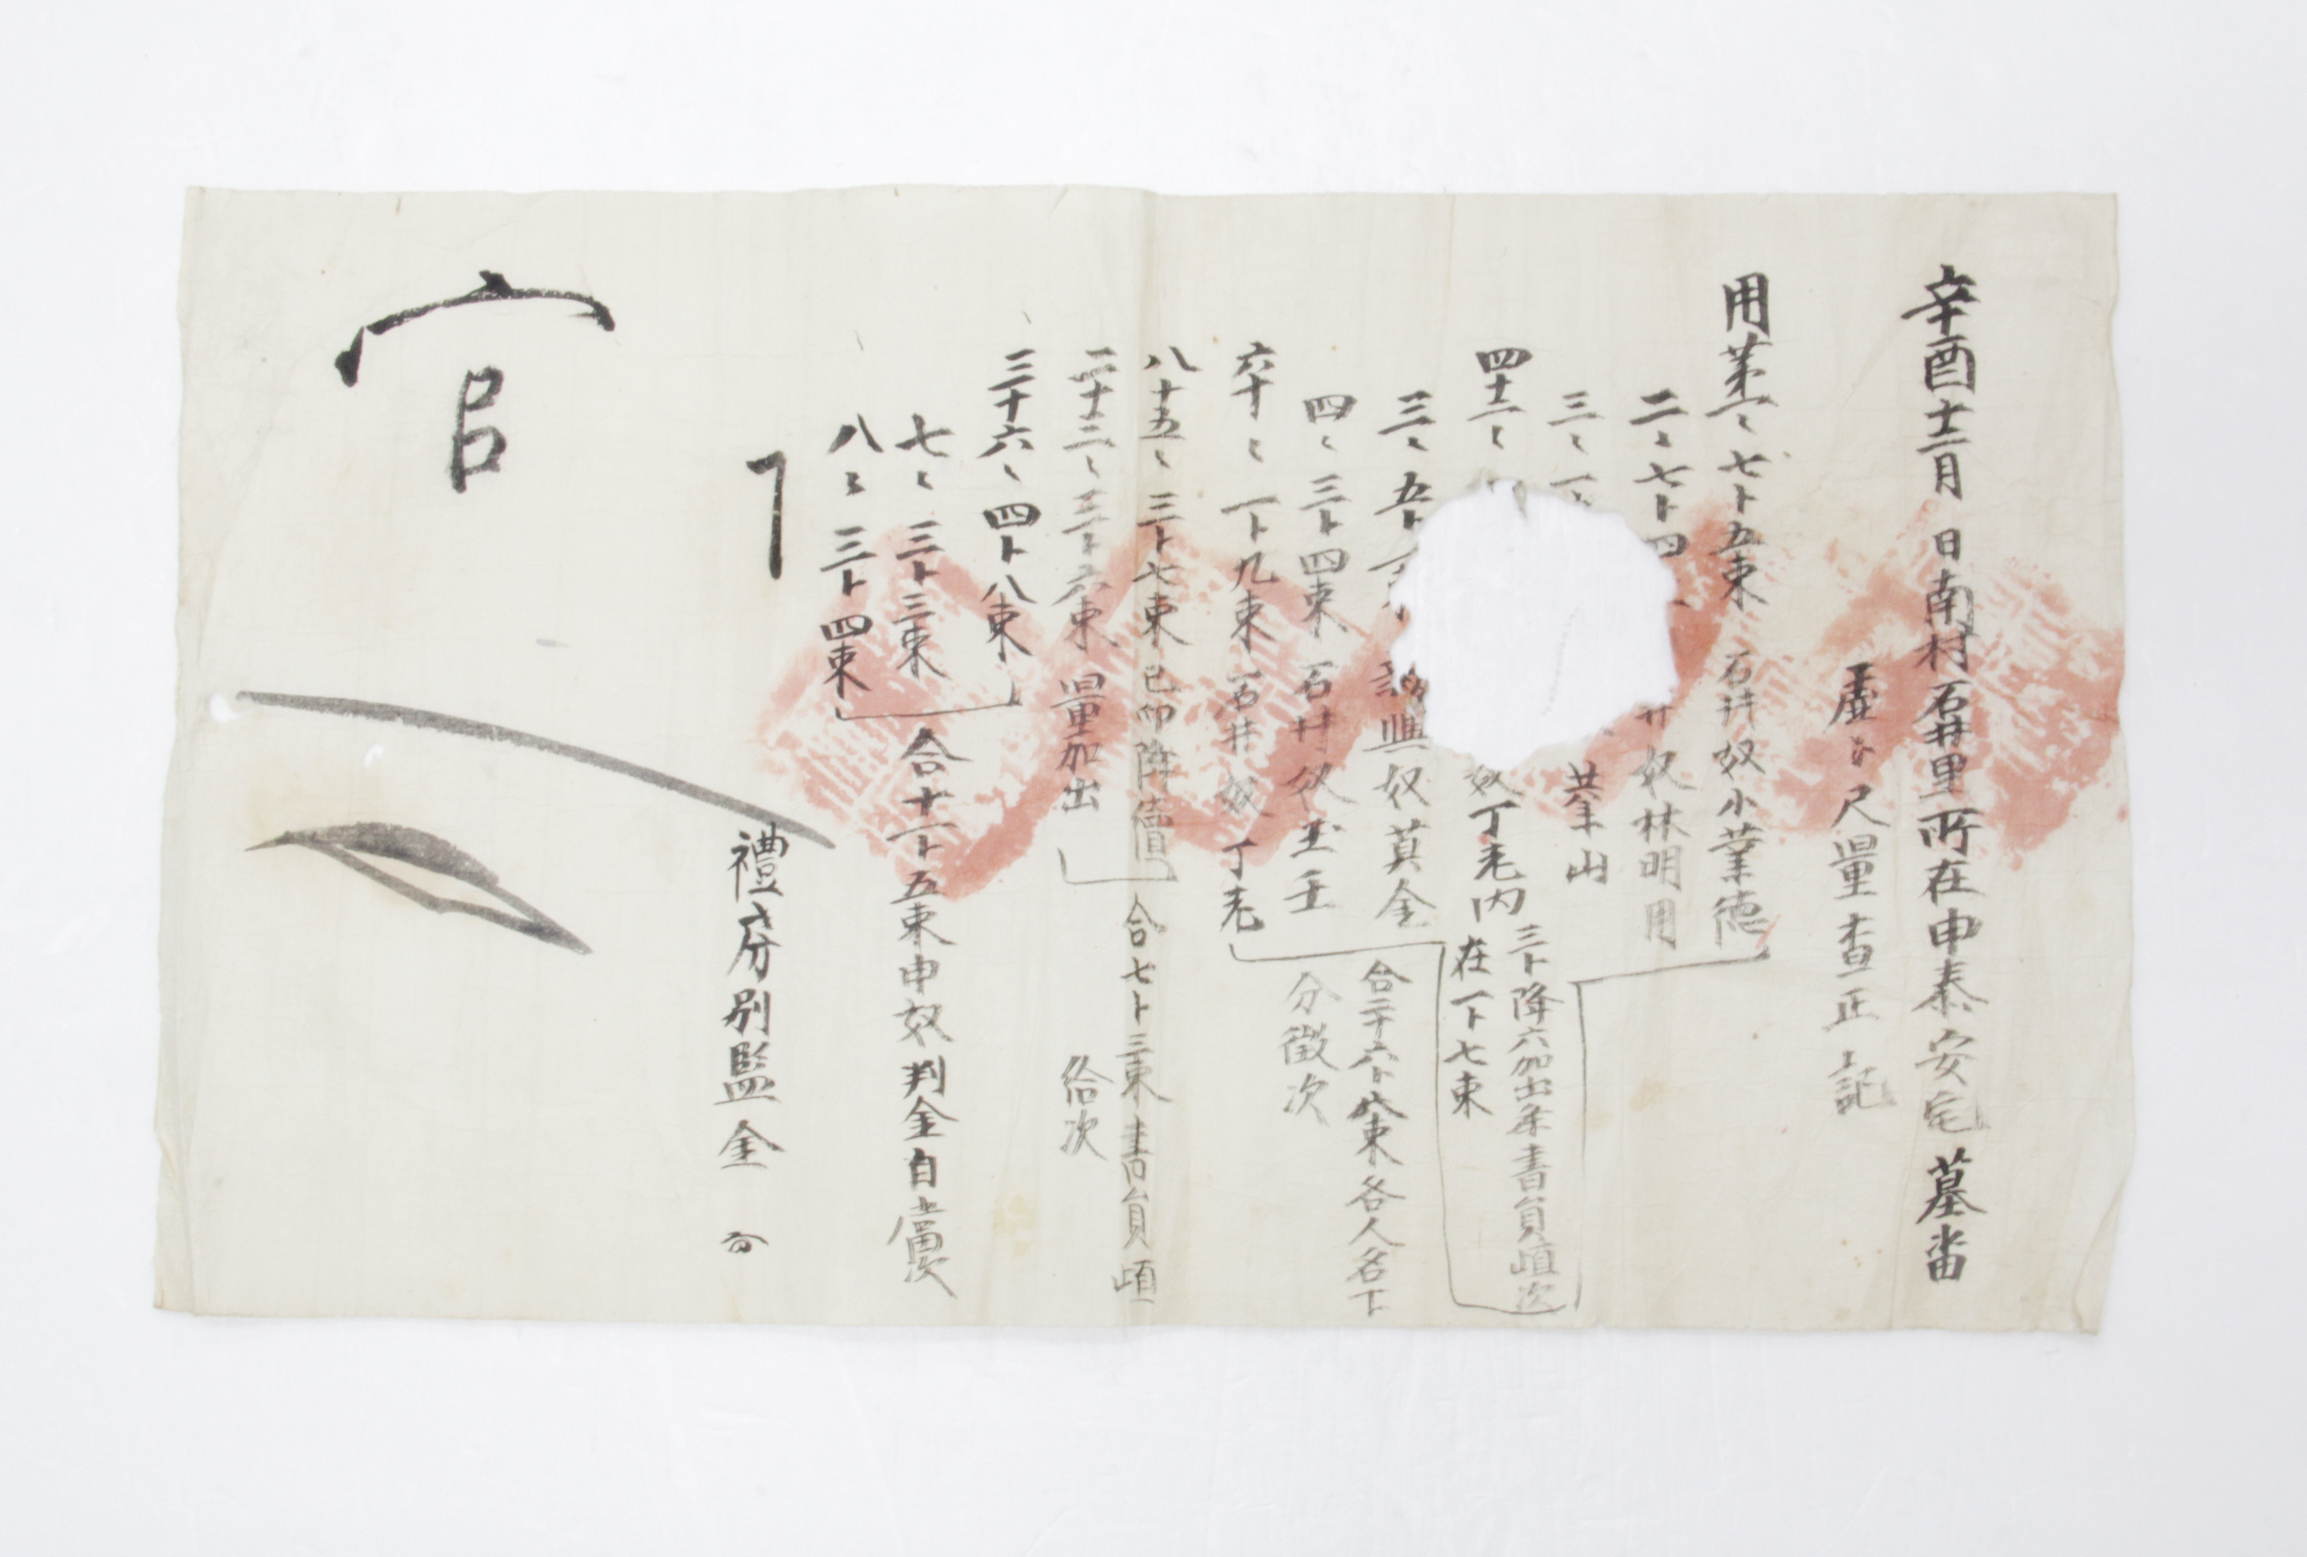 辛酉十二月 日南村石井里所在申泰安宅墓畓
虛卜尺量查正記
用苐一〻七卜五束 石井奴小業德
二〻七卜四 井奴林明用
三〻一 峯山
四十二〻 奴丁老內 三卜降六加出條書員頉次
在一卜七束
三〻五卜 興奴莫金
合二十六卜八束各人名下
四〻三卜四束 石井奴玉壬
分徵次
六十〻一卜九束 石井奴丁老
八十五〻三卜七束 已上降 合七卜三束書員頉
二十二〻三卜六束 量加出 給次
三十六〻四卜八束
七〻三卜三束 合十一卜五束申奴判金自當次
八〻三卜四束
禮房別監金
官